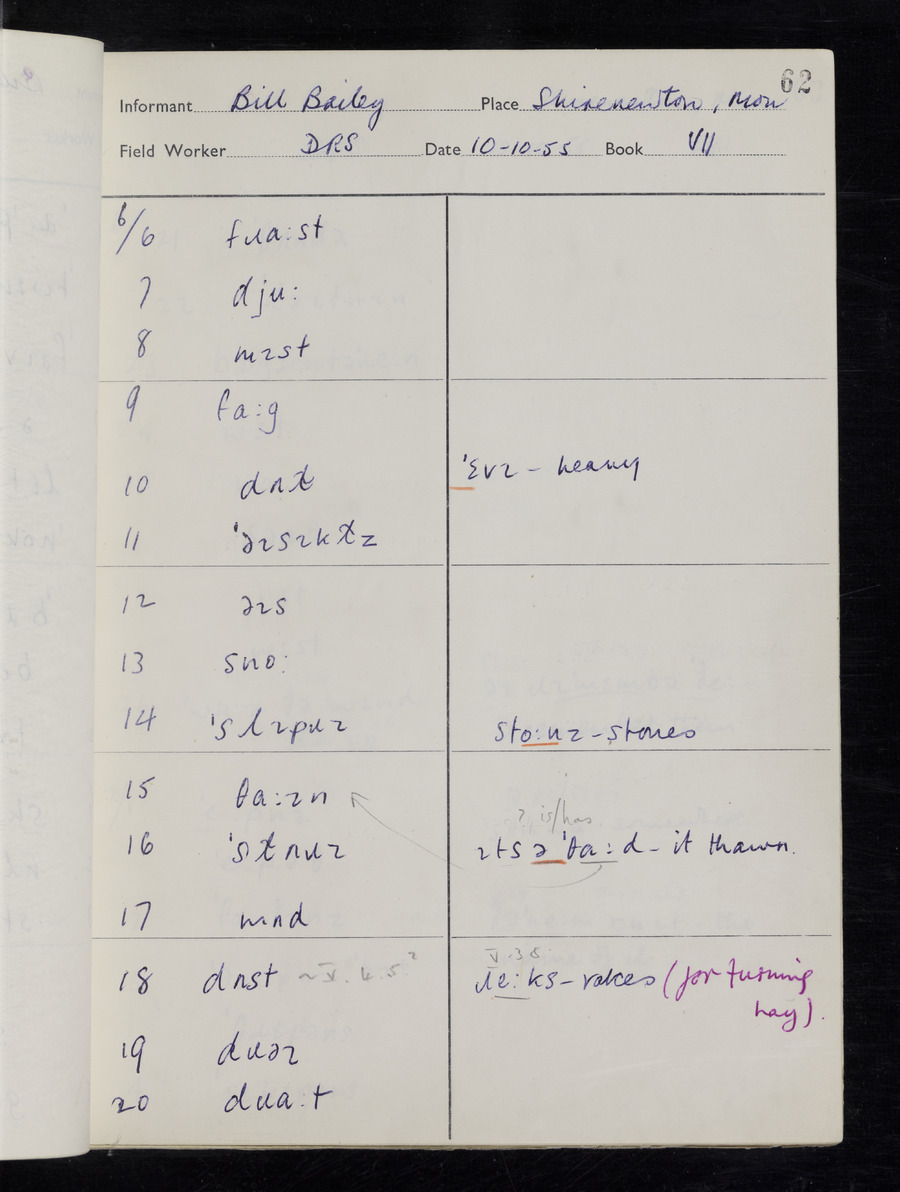 62
Informant Bill Bailey Place Shirenewton, Mon
Field Worker DRS Date 10-10-55 Book VII
6/6 fɹa:st
7 dju:
8 mɪst
9 fa:g
10 dʌɹt̵ 'ɛvɪ - heavy
11 'əɪsɪkɫz
12 əɪs
13 sno:
14 'slɪpɹɪ sto:nz - stones
15 θa:ɪn
? is/has
16 'stʌɹɪ ɪts ə 'θa:d - it thawn.
17 mʌd
V.3.8.
18 dʌst ~ V.4.5? ɹe:ks - rakes (for turning
hay).
19 dɹəɪ
20 dɹa:t